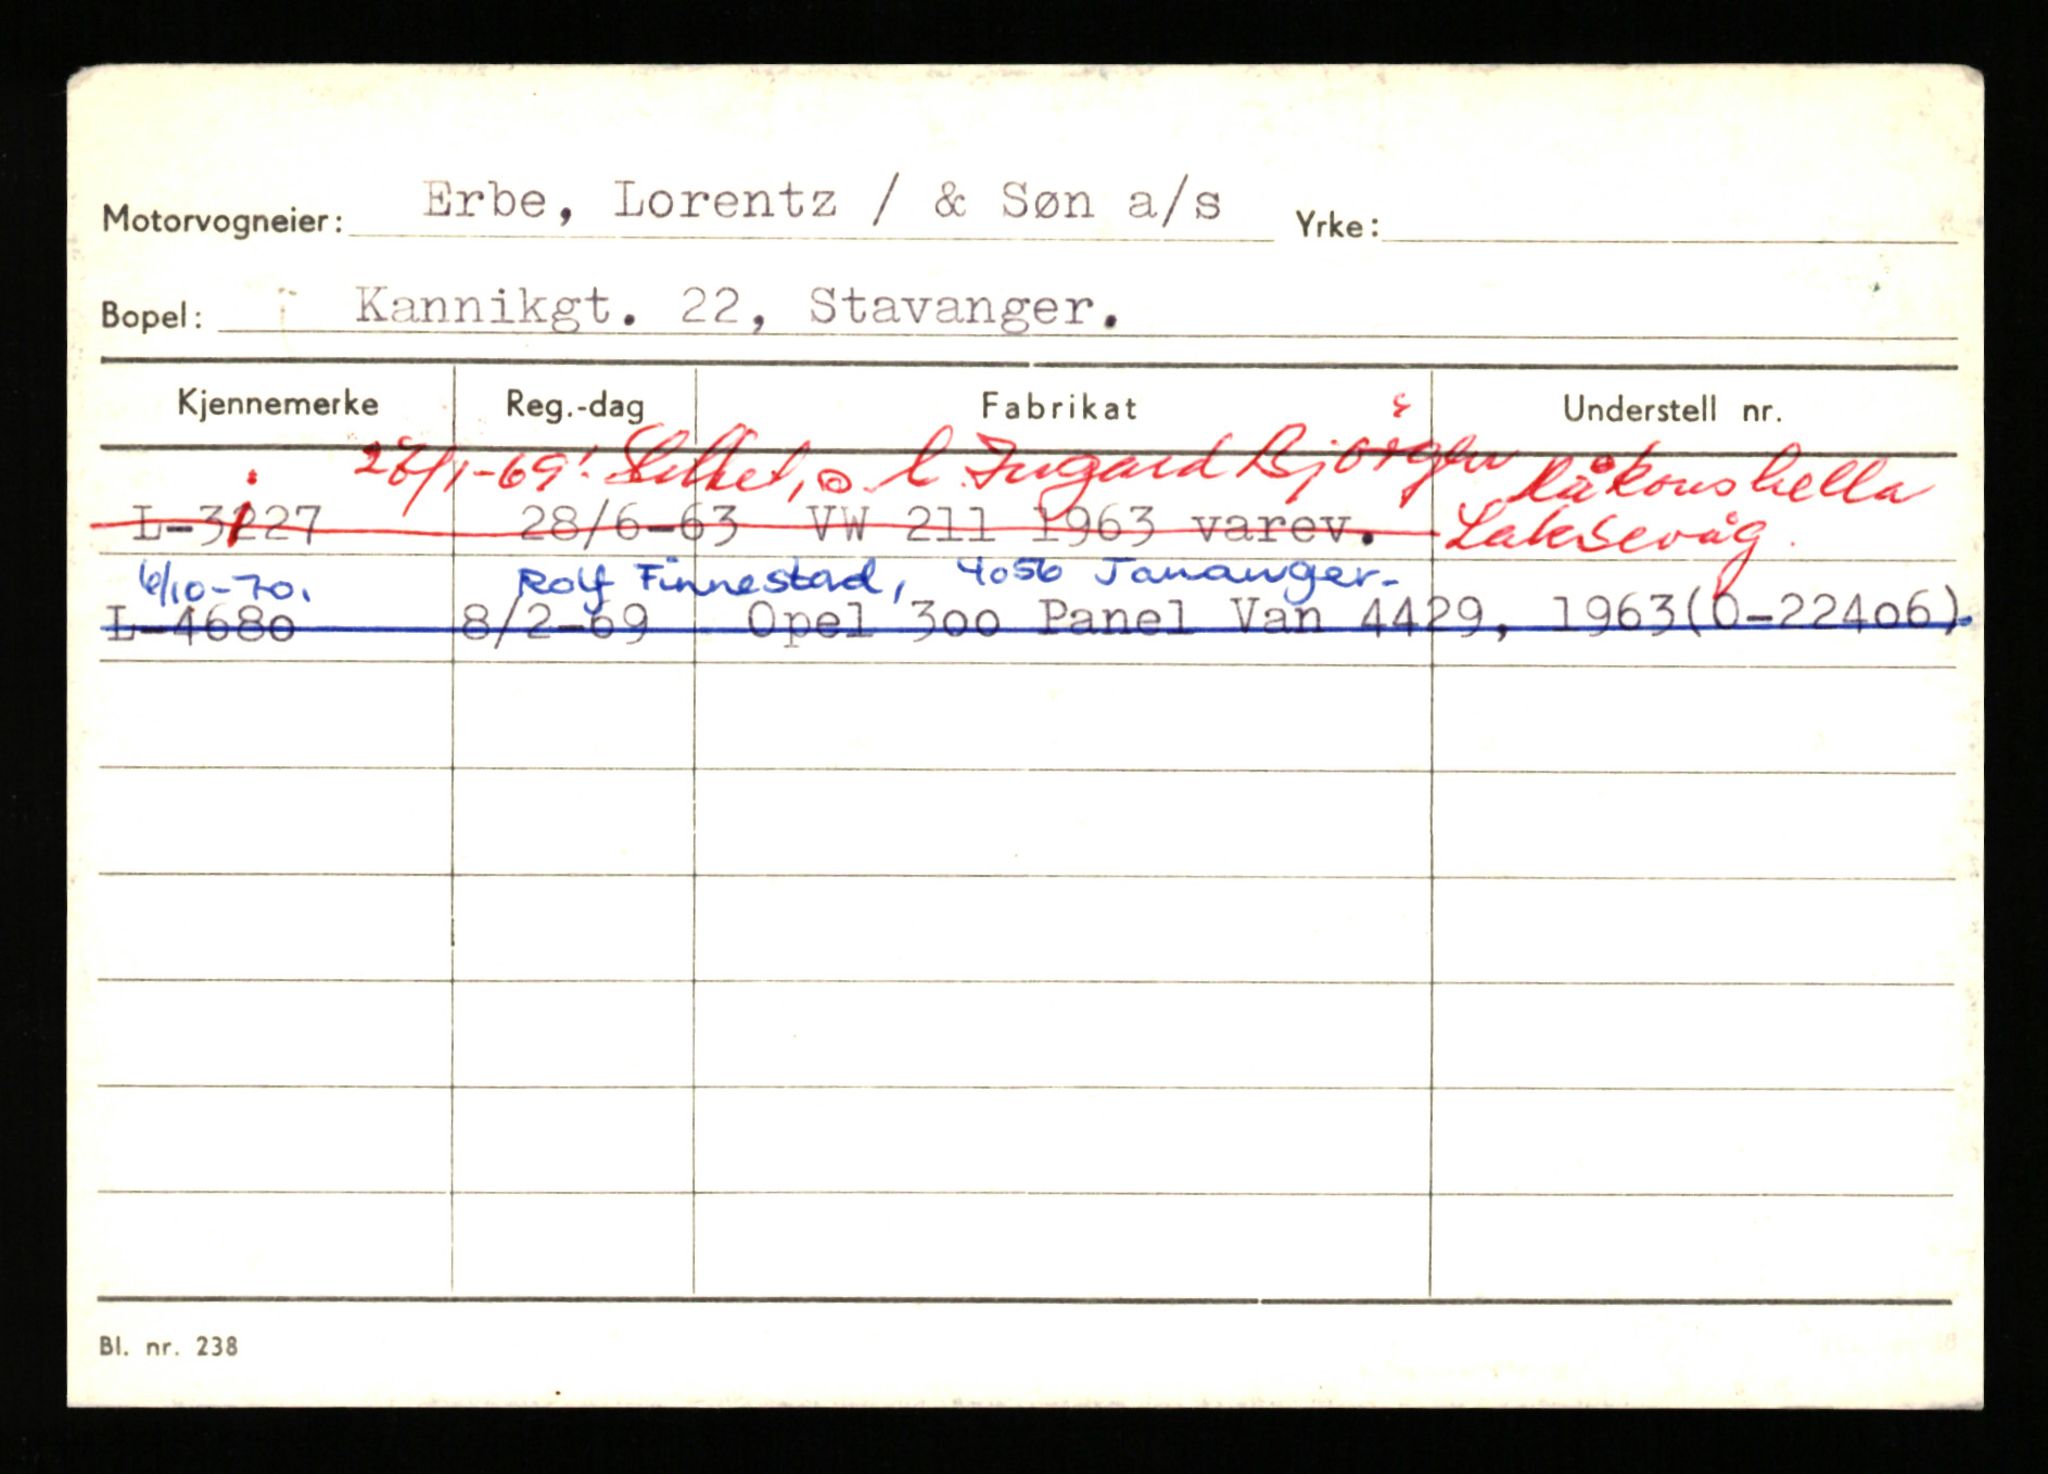 Motorvogneier: Erbe, Lorentz / & Søn a/s Yrke:
Bopel: Kannikgt. 22, Stavanger.
Kjennemerke Reg.-dag Fabrikat Understell nr.
/1-69: Ingard Håkonshella
L-3227 28/6-63 VW 211 1963 varev. Laksevåg.
6/10-70. Rolf Finnestad, 4056 Tananger-
L-4680 8/2-69 Opel 3oo Panel Van 4429, 1963(O-224o6).
Bl. nr. 238